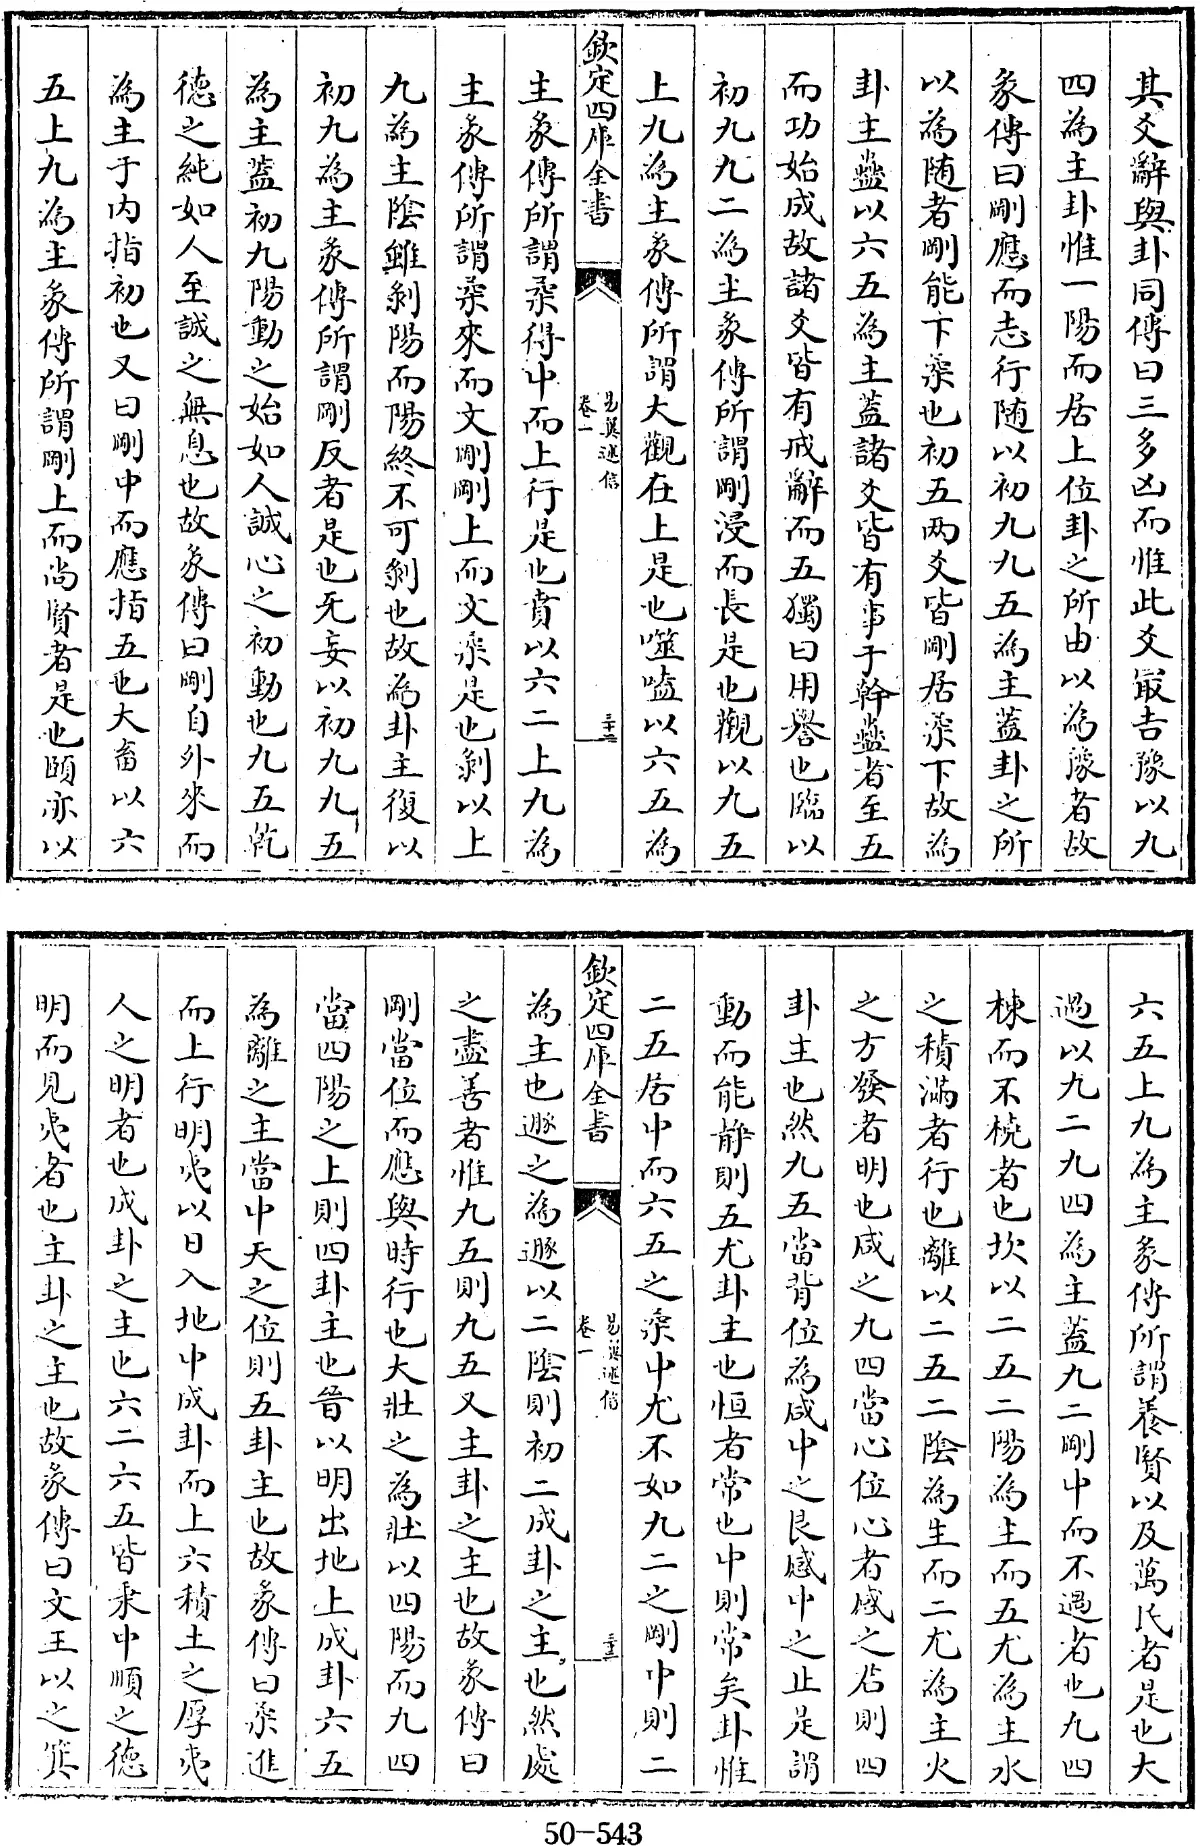 其爻辭與卦同傳曰三多凶而惟此爻最吉豫以九
四為主卦惟一陽而居上位卦之所由以為豫者故
彖傳曰剛應而志行随以初九九五為主蓋卦之所
以為随者剛能下柔也初五两爻皆剛居柔下故為
卦主蠱以六五為主蓋諸爻皆有事于幹蠱者至五
而功始成故諸爻皆有戒辭而五獨曰用譽也臨以
初九九二為主彖傳所謂剛浸而長是也觀以九五
上九為主彖傳所謂大觀在上是也噬嗑以六五為
欽定四庫全書
易翼述信
卷一
三十二
主彖傳所謂柔得中而上行是也賁以六二上九為
主彖傳所謂柔來而文剛剛上而文柔是也剝以上
九為主陰雖剝陽而陽終不可剝也故為卦主復以
初九為主彖傳所謂剛反者是也无妄以初九九五
為主蓋初九陽動之始如人誠心之初動也九五乾
德之純如人至誠之無息也故彖傳曰剛自外來而
為主于内指初也又曰剛中而應指五也大畜以六
五上九為主彖傳所謂剛上而尚賢者是也頤亦以
六五上九為主彖傳所謂養賢以及萬民者是也大
過以九二九四為主蓋九二剛中而不過者也九四
棟而不橈者也坎以二五二陽為主而五尤為主水
之積滿者行也離以二五二陰為主而二尤為主火
之方發者明也咸之九四當心位心者感之君則四
卦主也然九五當背位為咸中之艮感中之止是謂
動而能静則五尤卦主也恒者常也中則常矣卦惟
二五居中而六五之柔中尤不如九二之剛中則二
欽定四庫全書
易翼述信
卷一
三十三
為主也遯之為遯以二陰則初二成卦之主也然處
之盡善者惟九五則九五又主卦之主也故彖傳曰
剛當位而應與時行也大壯之為壯以四陽而九四
當四陽之上則四卦主也晉以明出地上成卦六五
為離之主當中天之位則五卦主也故彖傳曰柔進
而上行明夷以日入地中成卦而上六積土之厚夷
人之明者也成卦之主也六二六五皆秉中順之德
明而見夷者也主卦之主也故彖傳曰文王以之箕
50-543